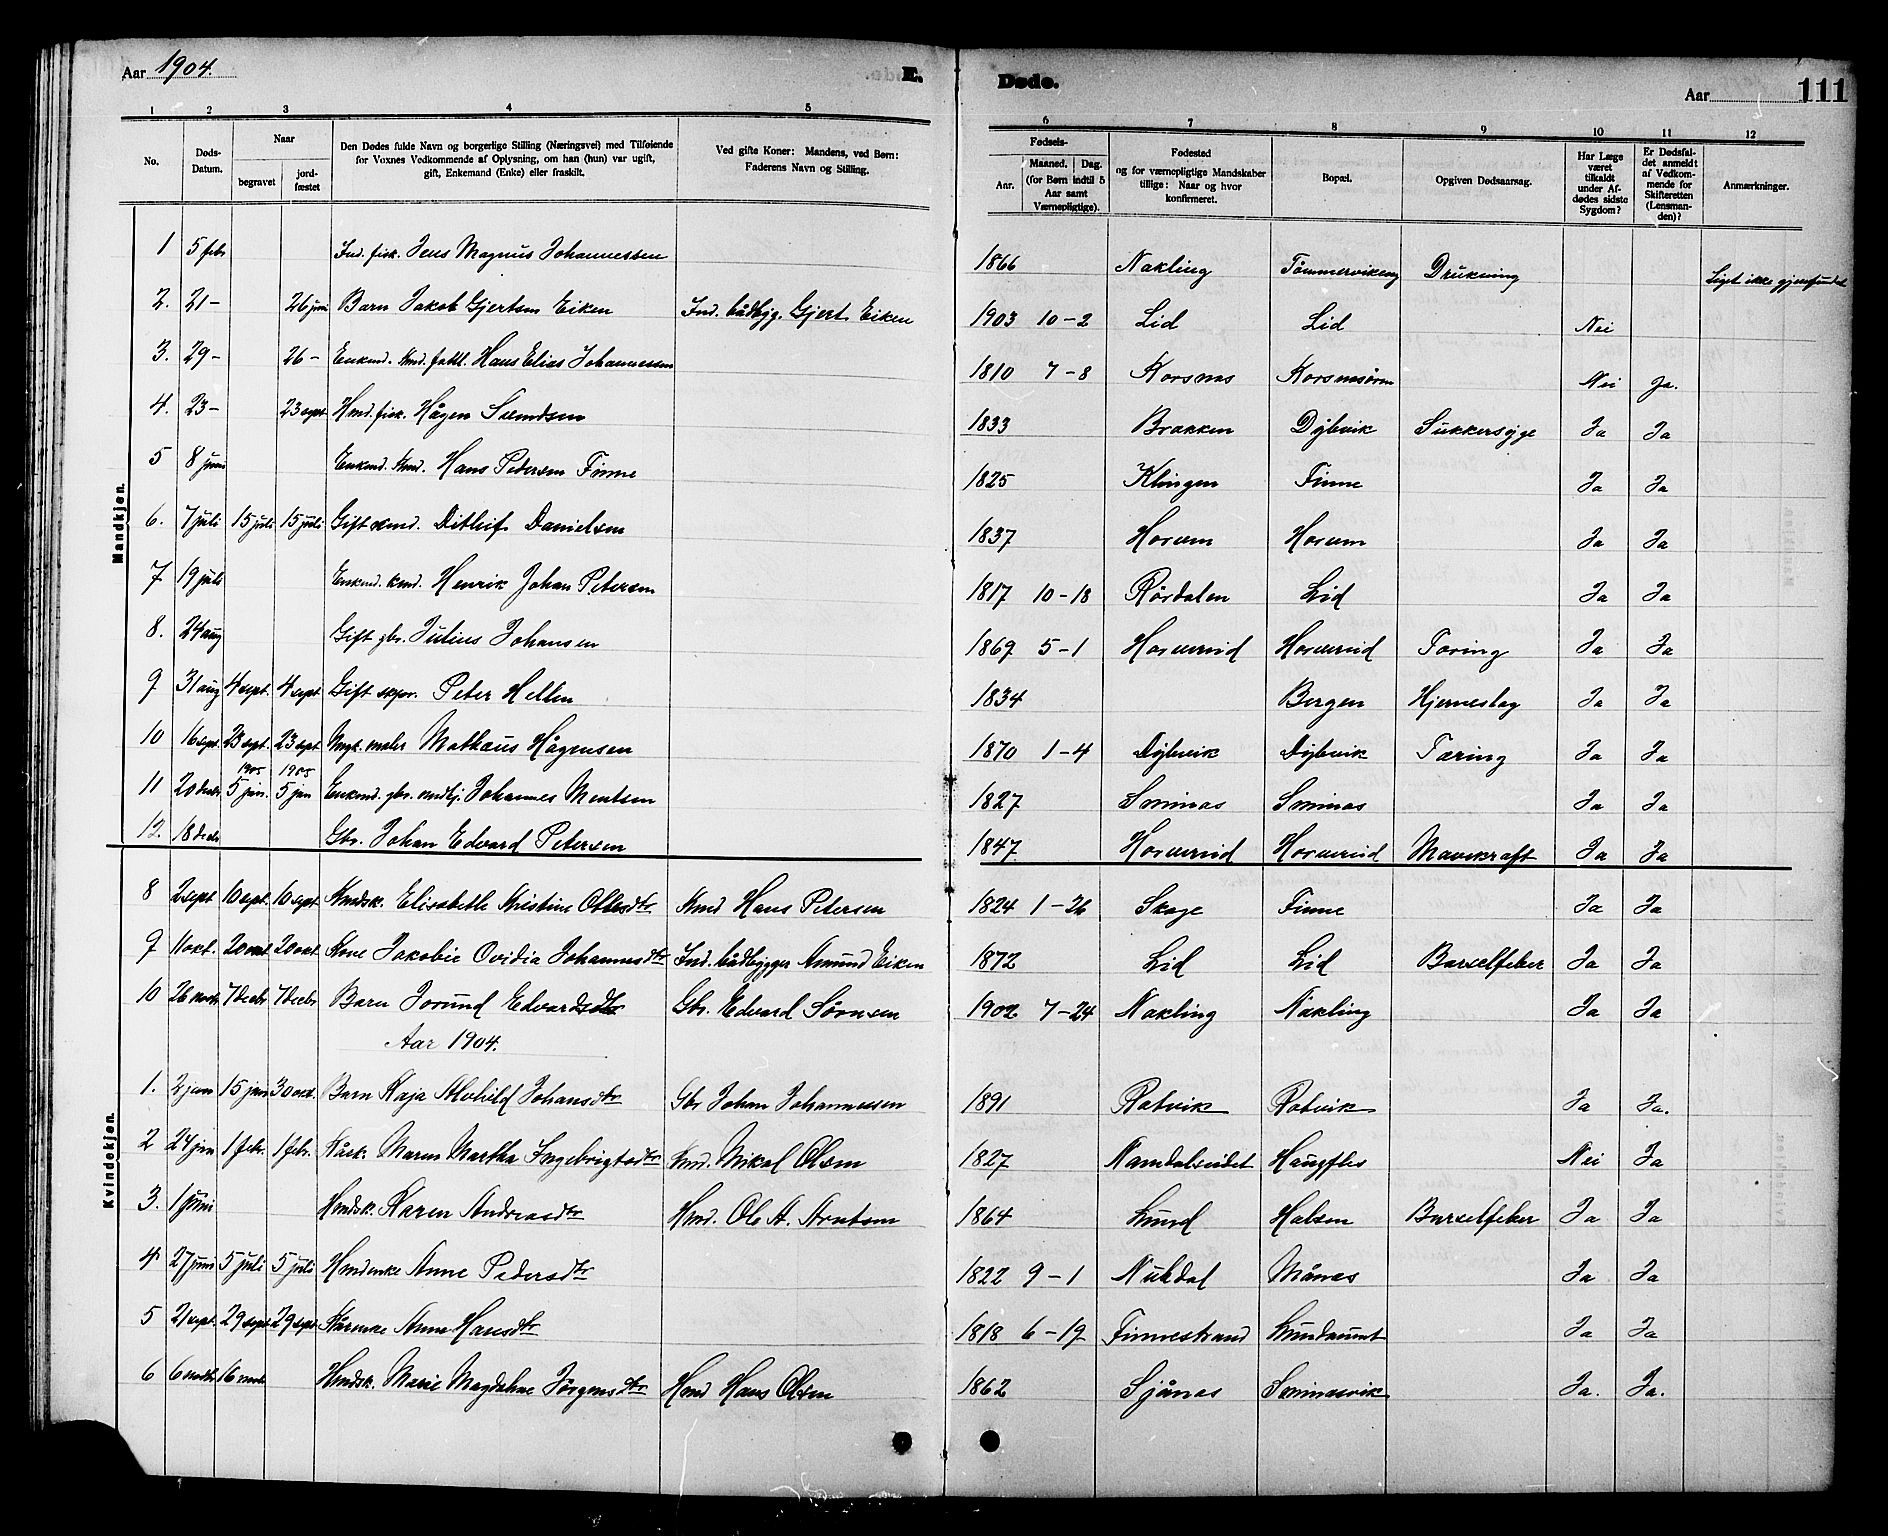 Aar 1904.
E.
Døde.
Aar
111
1 2 3 4 5 6 7 8 9 10 11 12
No.
Døds-Datum.
Naar
begravet
jord-fæstet
Den Dødes fulde Navn og borgerlige Stilling (Næringsvei) med Tilføiende
for Voxnes Vedkommende af Oplysning, om han (hun) var ugift,
gift, Enkemand (Enke) eller fraskilt.
Ved gifte Koner: Mandens, ved Børn:
Faderens Navn og Stilling.
Fødsels-
Aar.
Maaned. Dag.
(for Børn indtil 5
Aar samt
Værnepligtige).
Fødested
og for værnepligtige Mandskaber
tillige: Naar og hvor
konfirmeret.
Bopæl.
Opgiven Dødsaarsag.
Har Læge
været
tilkaldt
under Af-
dødes sidste
Sygdom?
Er Dødsfal-
det anmeldt
af Vedkom-
mende for
Skifteretten
(Lensman-
den)?
Anmærkninger.
Mandkjøn.
1 5 febr Ind. fisk. Jens Magnus Johannessen 1866 Nakling Tømmervikeng Drukning Liget ikke gjenfundet
2. 21- 26 juni Barn Jakob Gjertsen Eiken Ind. bådbyg. Gjert Eiken 1903 10-2 Lid Lid Nei
3. 29- 26- Enkmd. Hans Elias Johannessen 1810 7-8 Korsnæs Nei Ja.
4. 23- 23 sept Hmd. fisk. Hågen Svendsen 1833 Brakken Dybvik Sukkersyge Ja Ja
5 8 juni Enkmd. Kmd. Hans Pedersen Finne 1825 Klingen Finne Ja Ja
6. 7 juli 15 juli 15 juli Gift kmd. Ditlief Danielsen 1837 Horvem Horvem Ja Ja
7 19 juli Enkmd. kmd. Henrik Johan Petersen 1817 10-18 Rördalen Lid Ja Ja
8. 24 aug Gift gbr. Julius Johansen 1869 5-1 Horvereid Horvereid Tæring Ja Ja
9 31 aug 4 sept. 4 sept Gift Peter Hellen 1834 Bergen Hjerneslag Ja Ja
10 16 sept. 23 sept. 23 sept Ungk. maler Mathæus Hågensen 1870 1-4 Dybvik Dybvik Tæring Ja Ja
1905 1905
11 20 decbr 5 jan. 5 jan Enkmd. gbr. Johannes Mentsen 1827 Sminæs Sminæs Ja Ja
12. 18 decbr Gbr. Johan Edvard Petersen 1847 Horvereid Horvereid Mavekræft Ja Ja
Kvindekjøn.
8 2 sept 10 sept. 10 sept. Kmdsk. Elisabeth Kristine Olesdtr Kmd Hans Petersen 1824 1-26 Skage Finne Ja Ja
9 11 okt. 20 okt 20 okt Kone Jakobie Ovidia Johannesdtr Ind. bådbygger Amund Eiken 1872 Lid Lid Barselfeber Ja Ja
10 26 novbr 7 decbr 7 decbr Barn Jorund Edvardsdtr Gbr. Edvard Sörnsen 1902 7-24 Nakling Nakling Ja Ja
Aar 1904.
1. 2 jan 15 jan Barn Kaja Alvhild Johansdtr Gbr Johan Johannessen 1891 Rotvik Rotvik Ja Ja.
2 24 jan 1 febr. 1 febr. Kårk. Maren Martha Ingebrigtsdtr Kmd. Mikal Olsen 1827 Namdalseidet Haugfles Nei Ja
3. 1 juni Hmdsk. Karen Andreasdtr Hmd. Ole A. Arntsen 1864 Lund Halsen Barselfeber Ja Ja
4 27 juni 5 juli 5 juli Hmdenke Anne Pedersdtr 1822 9-1 Måneset Ja Ja
5 21 sept. 29 sept. 29 sept Anne Hansdtr 1818 6-19 Finnestrand Ja Ja
6 6 novbr 16 novbr Hmdsk. Marie Magdalene Jörgensdtr Hmd Hans Olsen 1862 Sjånæs Ja. Ja.